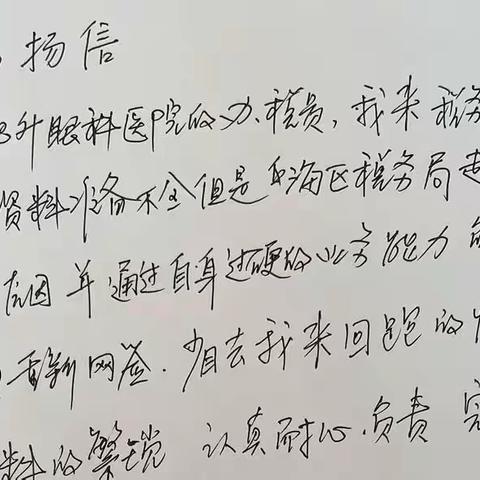 扬信
升眼科医院的办税员,我来税务
资料准备不全但是海区税务局
原因并通过自身过硬的业务能力
重新网签.省去我来回跑的
料的繁锁 认真耐心.负责 完